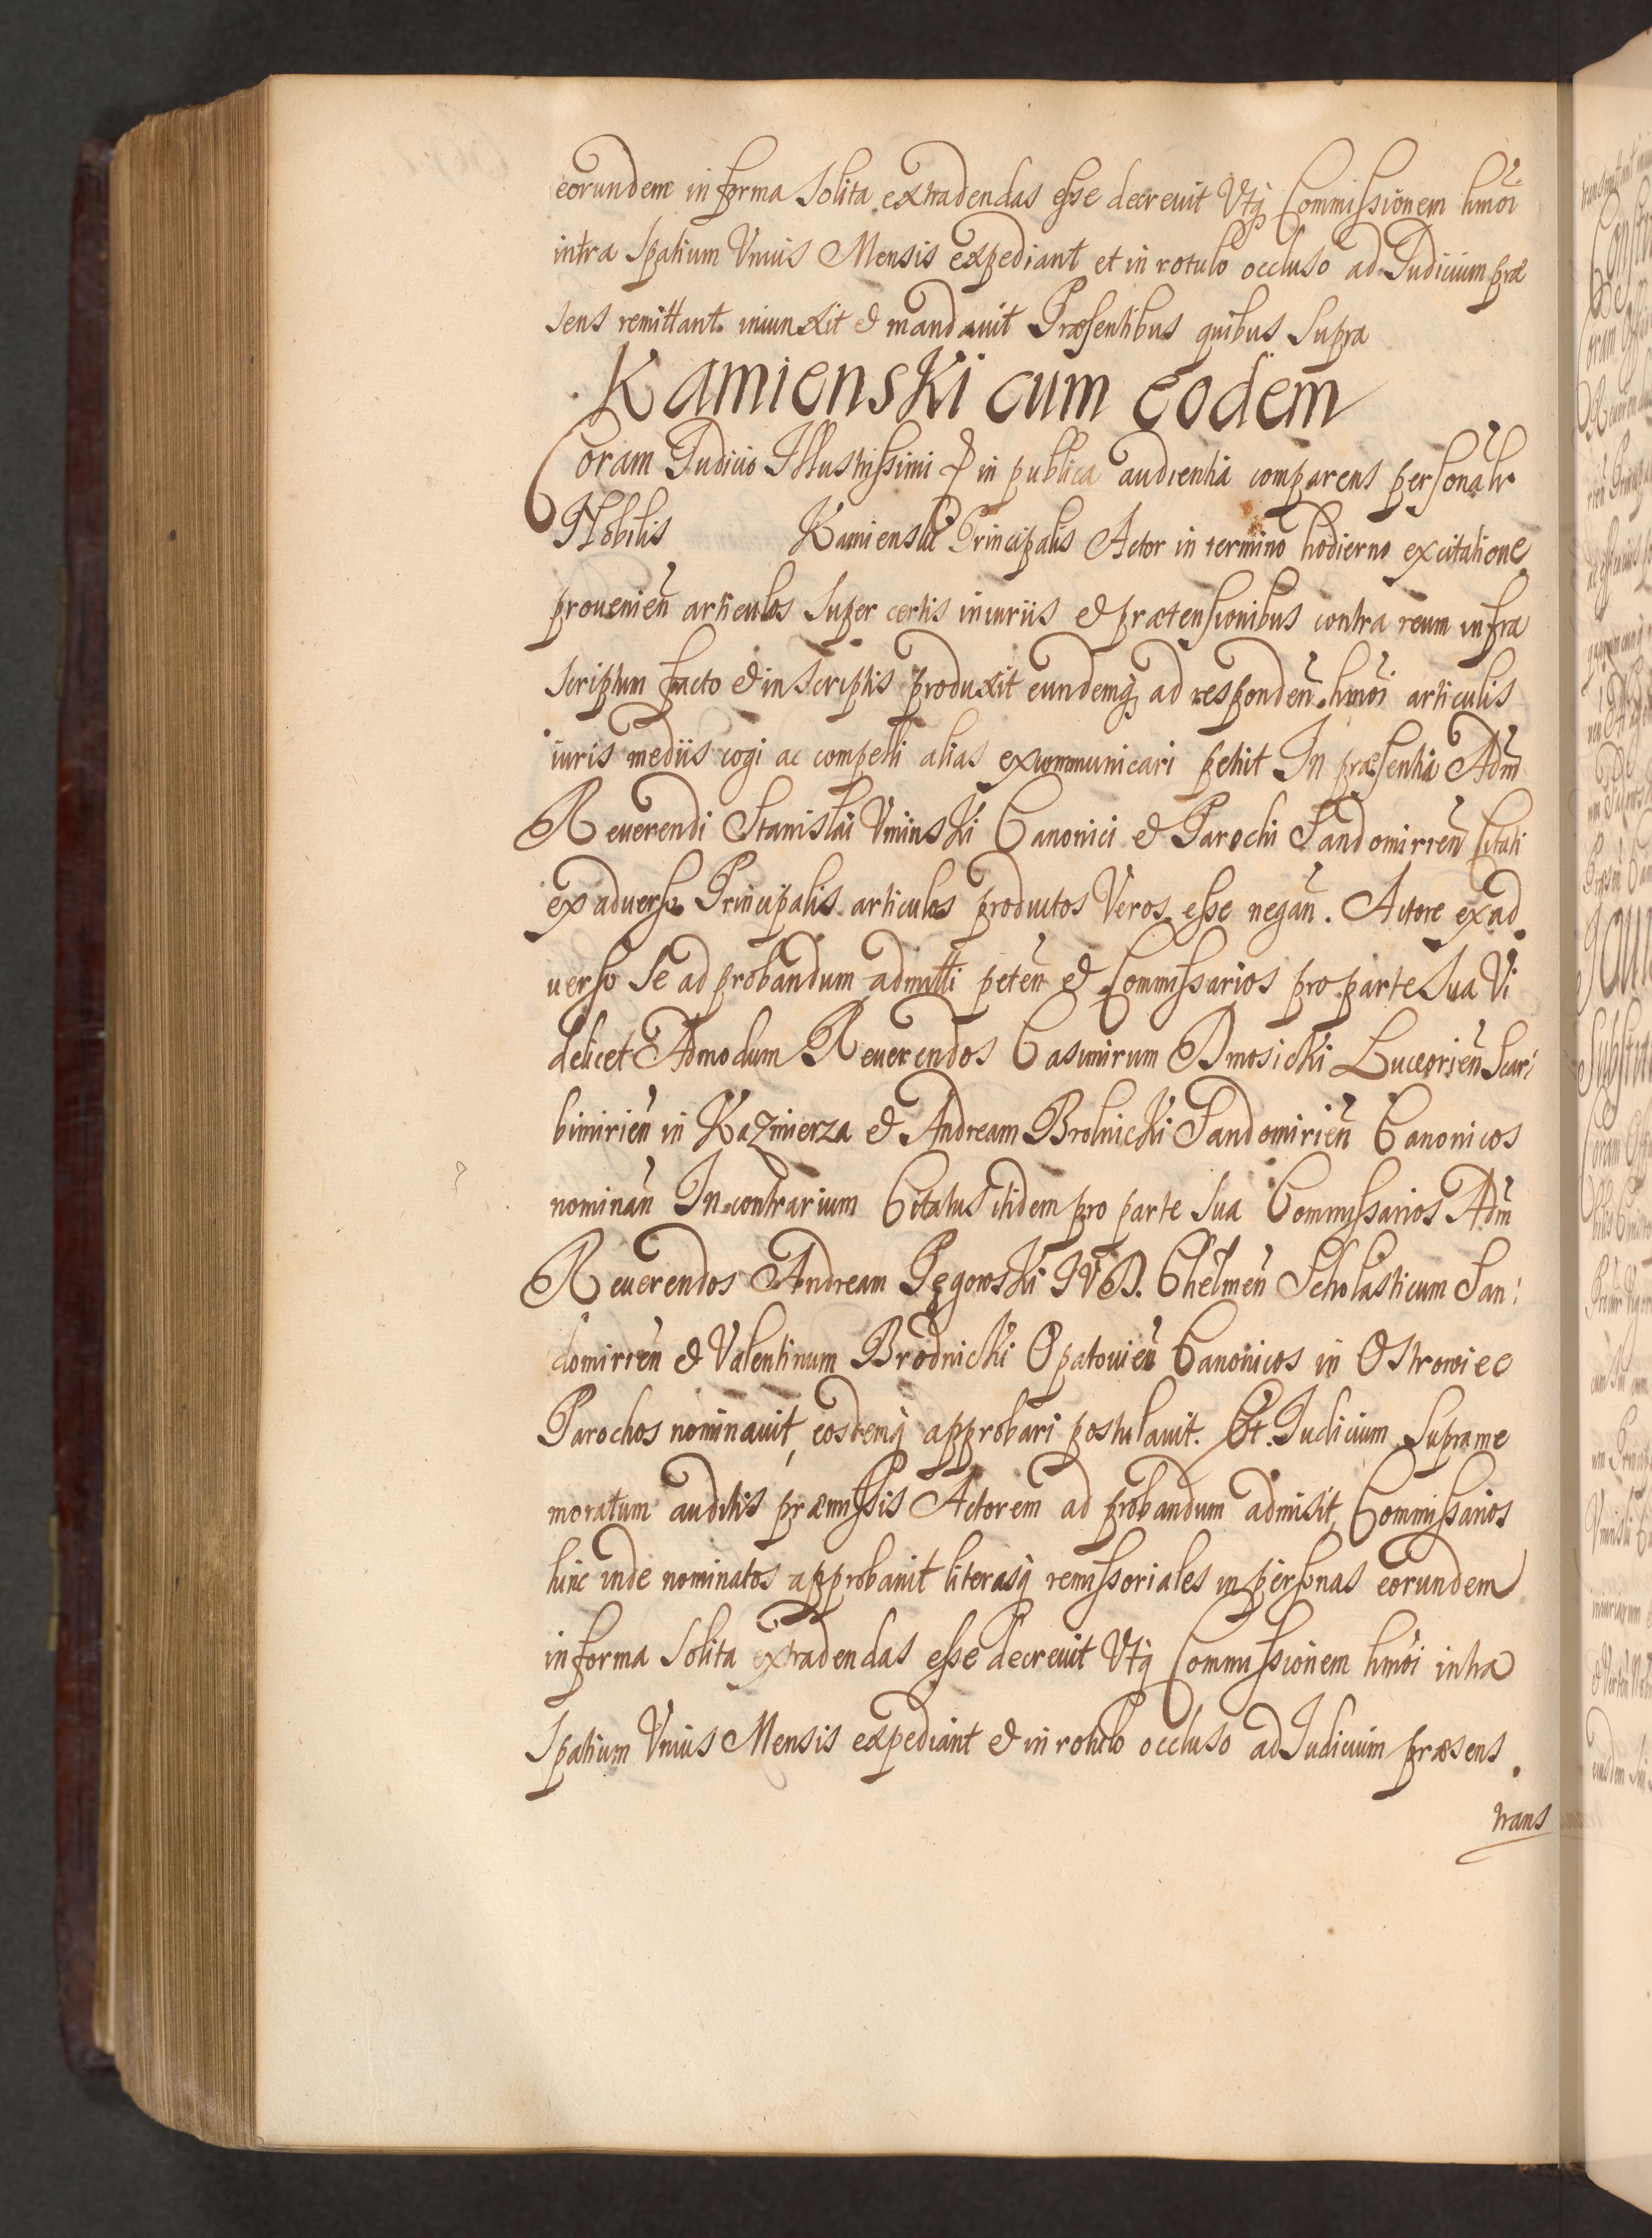 eorundem in forma Solita extradendas esse decreuit Vtq Commissionem hmoi
intra Spatium Vnius Mensis expediant et in rotulo occluso ad Judicium præ
sens remittant iniunxit & mandauit Præsentibus quibus Supra
Kamienski cum eodem
Coram Judicio Illustrissimi & in publica audientia comparens personalr
Nobilis Kamienski Principalis Actor in termino hodierno ex citatione
prouenien articulos Super certis iniuriis & prætensionibus contra reum infra
scriptum facto & in scriptis produxit eundemq ad responden hmoi articulis
iuris mediis cogi ac compelli alias excommunicari petiit In præsentia Adm
Reuerendi Stanislai Vminski Canonici & Parochi Sandomirien Citati
ex aduerso Principalis articulos productos Veros esse negan. Actore ex ad
uerso Se ad probandum admitti peten & Commissarios pro parte Sua Vi
delicet Admodum Reuerendos Casimirum Dmosicki Luceorien Scar
bimirien in Kazimierza & Andream Brolnicki Sandomirien Canonicos
nominan In contrarium Citatus itidem pro parte Sua Commissarios Adm
Reuerendos Andream Pęgowski IVD. Chelmen Scholasticum San
domirien & Valentinum Brodnicki Opatouien Canonicos in Ostrowiec
Parochos nominauit, eosdemq approbari postulauit. Et Judicium Suprame
moratum auditis præmissis Actorem ad probandum admisit, Commissarios
hinc inde nominatos approbauit literasq remissoriales in personas eorundem
in forma Solita extradendas esse decreuit Vtq Commissionem hmoi intra
Spatium Vnius Mensis expediant & in rotulo occluso ad Judicium præsens.
trans